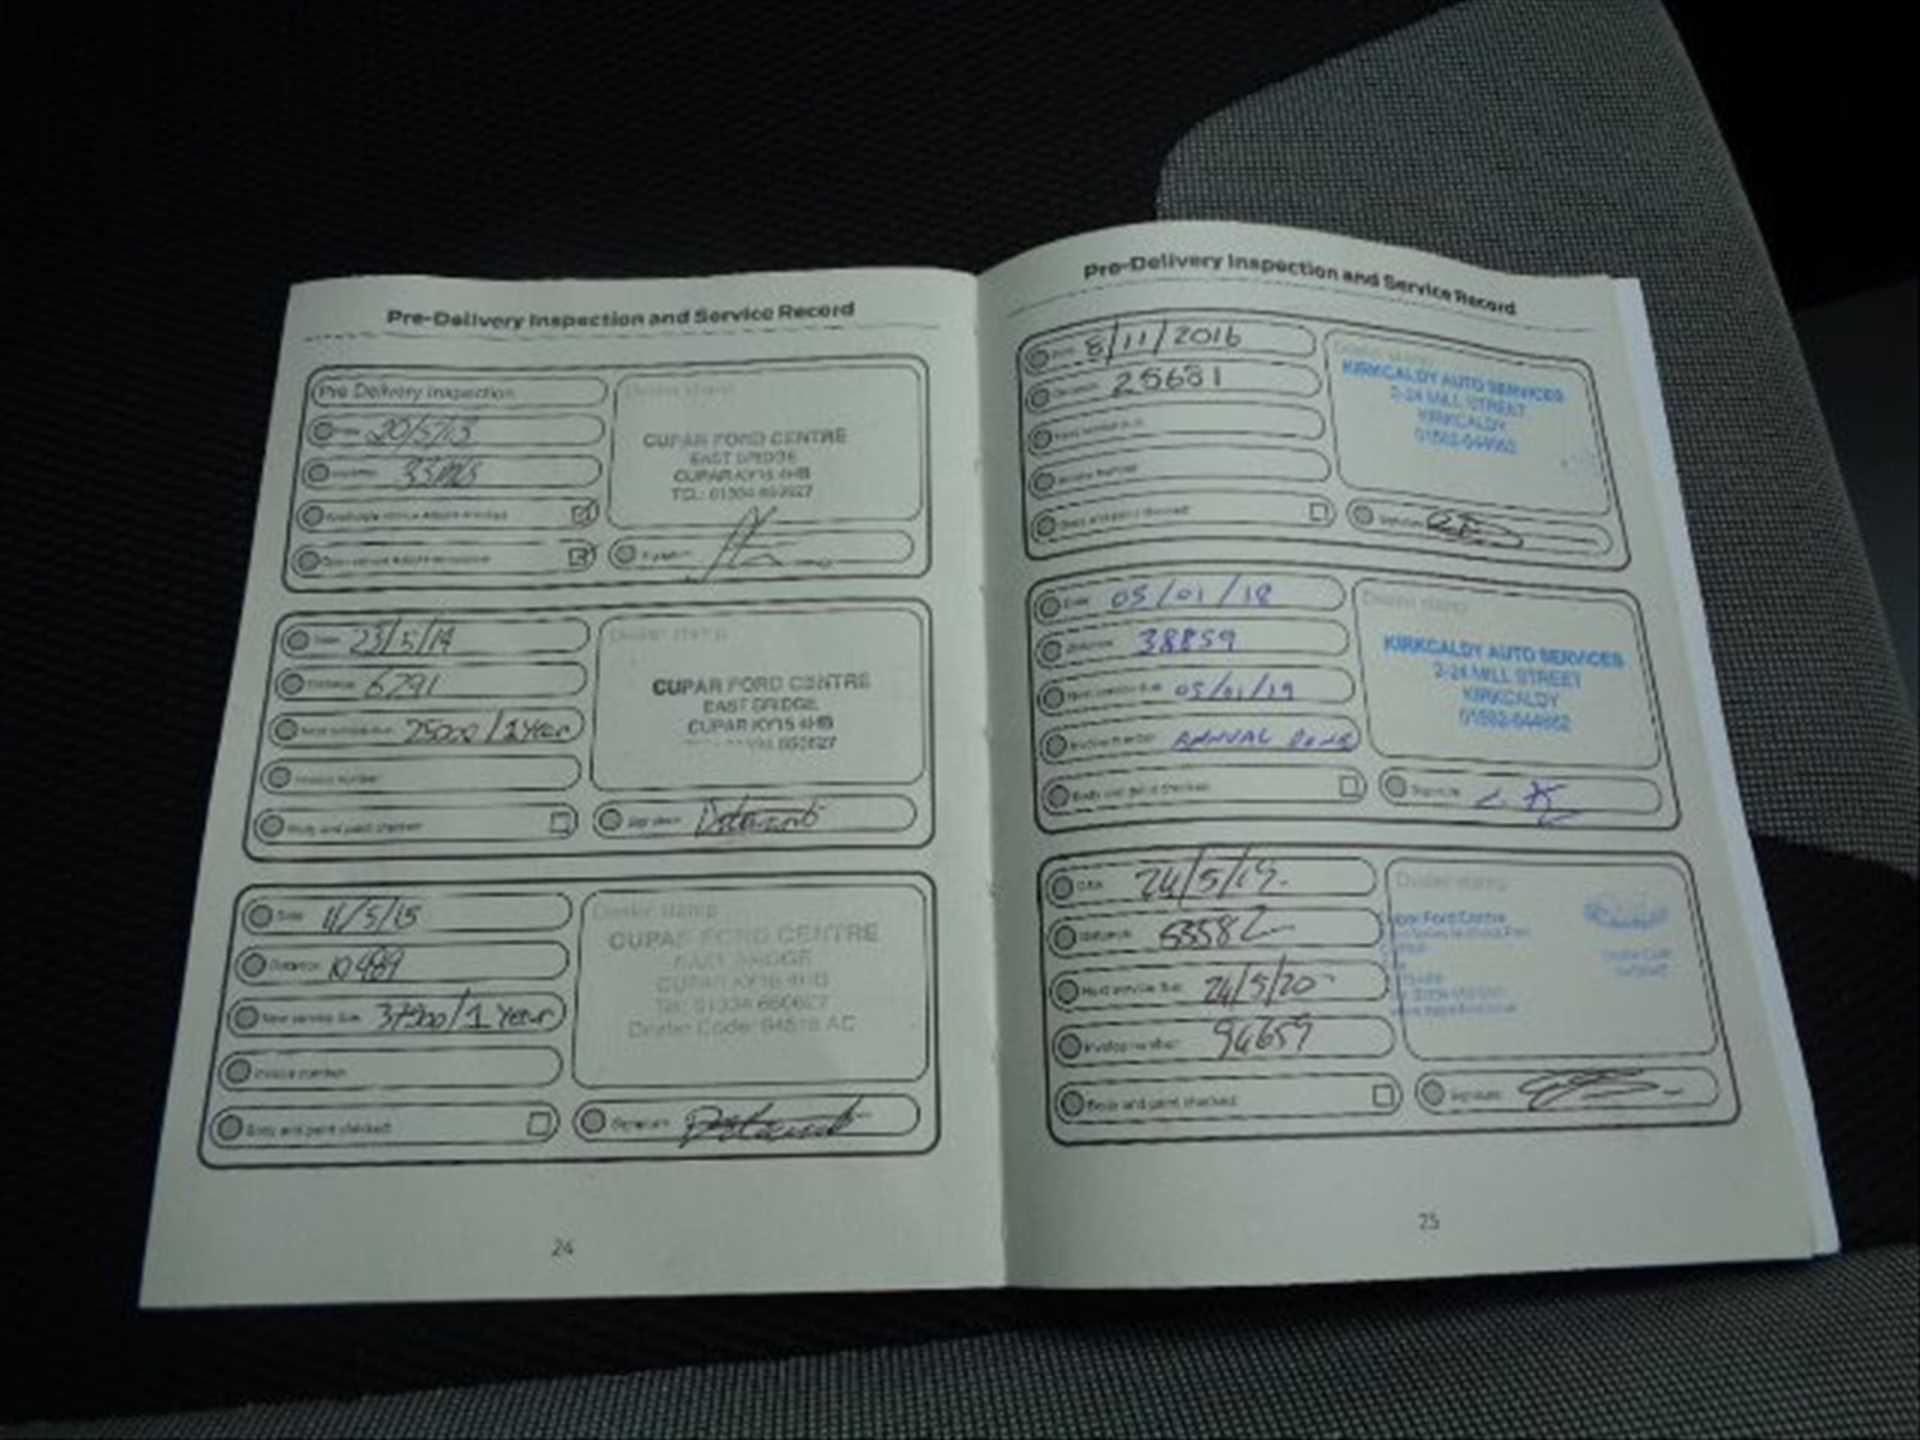 Pre-Delivery Inspection and Service Record
Pre Delivery Inspection
Dealer stamp
20/5/13
33mls
CUPAR FORD CENTRE
EAST BRIDGE
CUPAR KY15 4HB
Signature
Date 23/5/14
Distance 6291
Next service due 25000/1 Year
Invoice number
Body and paint checked
Dealer stamp
CUPAR FORD CENTRE
EAST BRIDGE
CUPAR KY15 4HB
Signature
Date 11/5/15
Distance 10489
Next service due 37500/1 Year
Invoice number
Body and paint checked
Dealer stamp
CUPAR FORD CENTRE
EAST BRIDGE
CUPAR KY15 4HB
Tel: 01334 650627
Signature
24
Pre-Delivery Inspection and Service Record
Date 8/11/2016
Distance 25681
Next service due
Invoice number
Body and paint checked
Dealer stamp
KIRKCALDY AUTO SERVICES
2-24 MILL STREET
KIRKCALDY
Signature
Date 05/01/18
Distance 38859
Next service due 05/01/19
Invoice number ANNUAL DONE
Body and paint checked
Dealer stamp
KIRKCALDY AUTO SERVICES
2-24 MILL STREET
KIRKCALDY
Signature
Date 24/5/19
Distance 53582
Next service due 24/5/20
Invoice number 94659
Body and paint checked
Dealer stamp
Ford Centre
Signature
25